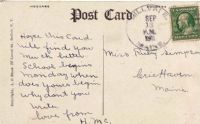 Post Card
SEP
13
Hope this Card
will find you
much better
School begins
Monday when
does yours begin
why dont you
write
love from
Miss Ruby Simpson
Criehaven
Maine